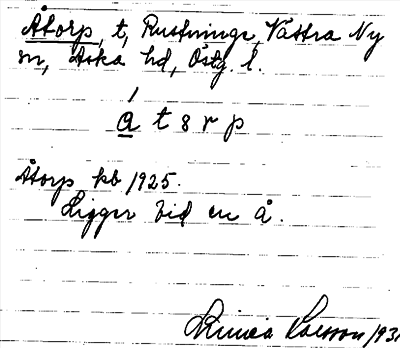 Åtorp, t, Rustninge, Västra Ny
sn, Aska hd, Östg. l.
å t ȣ r p
Åtorp kb 1925.
Ligger vid en å.
Linnea Larsson 193